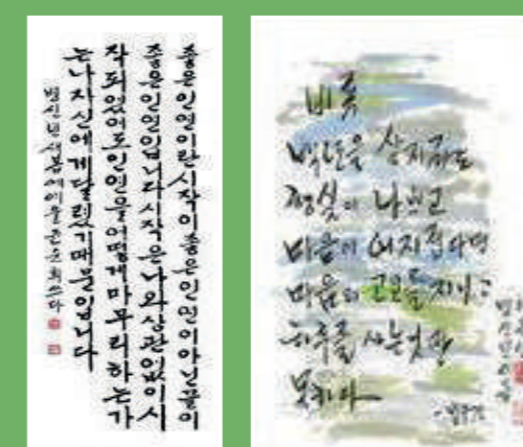 좋은인연이란시작이좋은인연이아닌끝이
좋은인연입니다시작은나와상관없이시
작되었어도인연을어떻게마무리하는가
는나자신에게달렸기때문입니다
비록
백년을 살지라도
행실이 나쁘고
마음이 어지럽다면
마음의 고요를 지니고
하루를 사는것만
못하다
-법구경